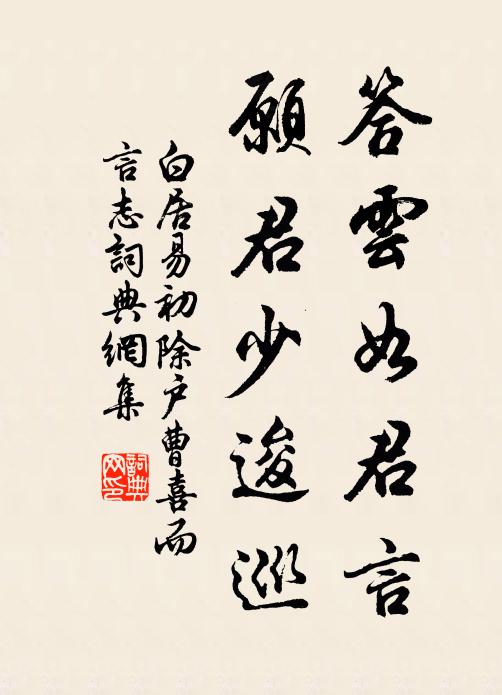 答雲如君言
願君少逡巡
白居易初除戶曹喜而
言志詞典網集
詞典
网印